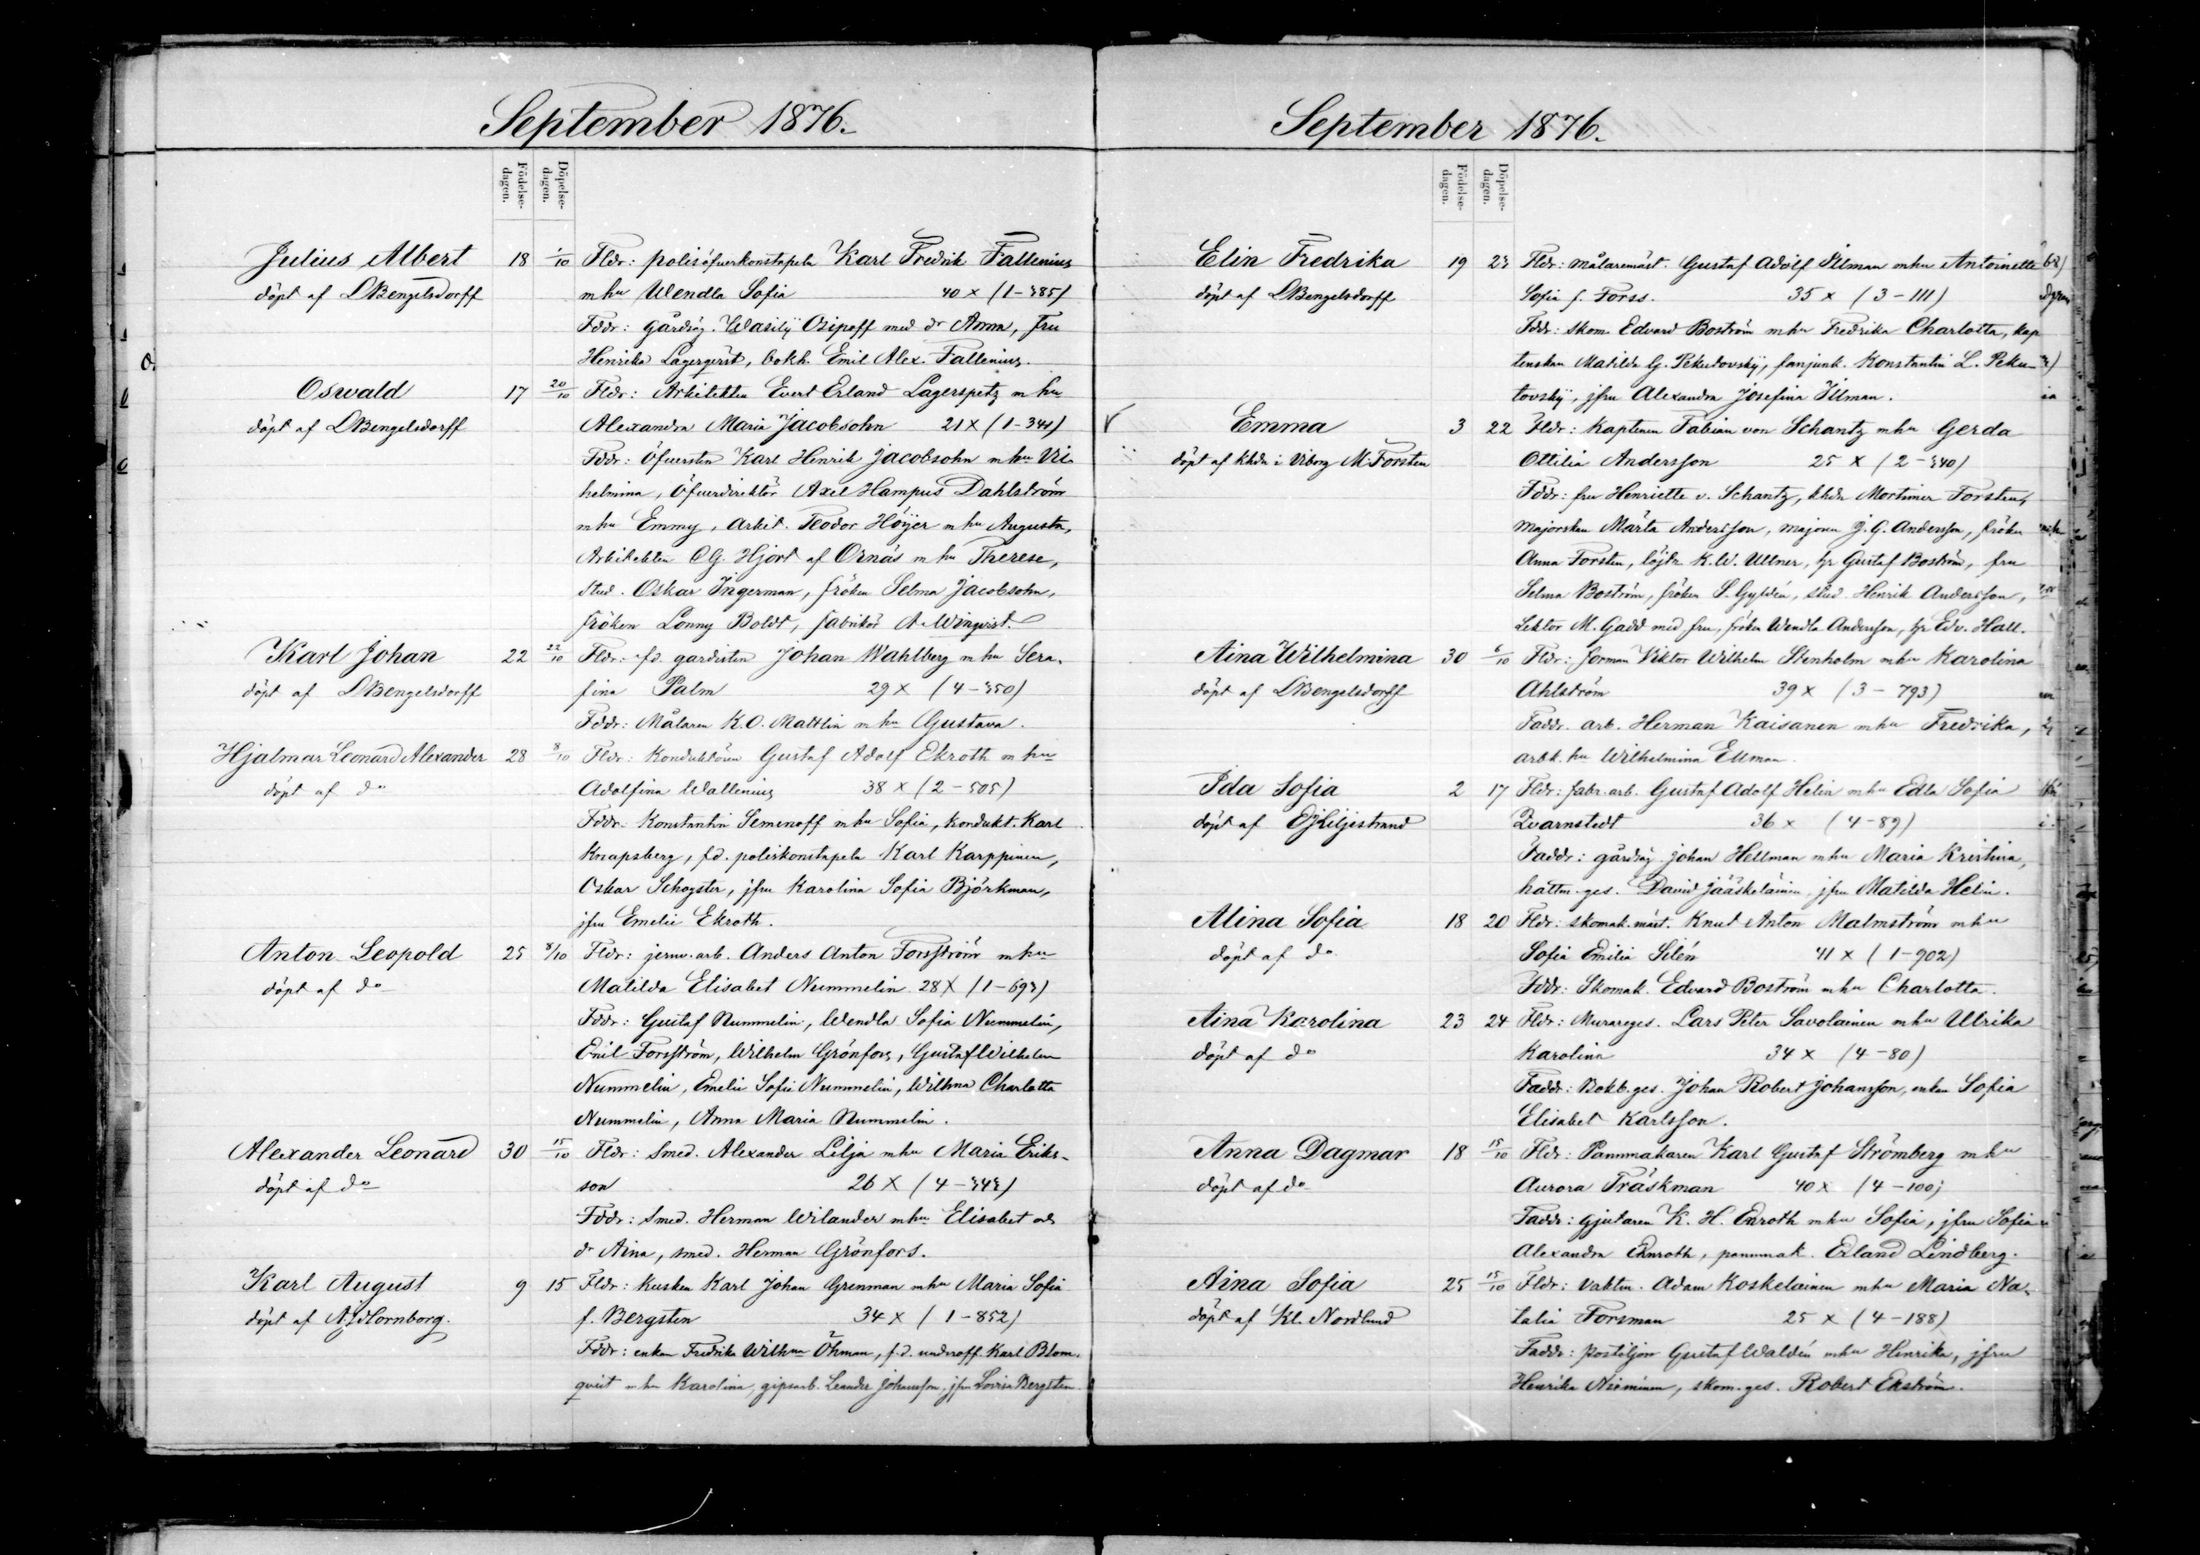 September 1876.
Födelse-dagen. Döpelse-dagen.
Julius Albert 18 1/10 Fldr: polisöfverkonstapeln Karl Fredrik Fallenius
döpt af LBengelsdorff m hu Wendla Sofia 40 x (1-385)
Fddr: gårdsäg. Wasilij Osipoff med dr Anna, fru
Henrika Lagergrist, bokh. Emil Alex. Fallenius.
Oswald 17 20/10 Fldr: Arkitekten Evert Erland Lagerspetz m hu
döpt af LBengelsdorff Alexandra Maria Jacobsohn 21 x (1-341)
Fddr: Öfversten Karl Henrik Jacobsohn m hu Vil-
helmina, öfverdirektör Axel Hampus Dahlström
m hu Emmy, Arkit. Teodor Höijer m hu Augusta,
Arkitekten CG. Hjort af Ornäs m hu Therese,
Stud. Oskar Ingerman, fröken Selma Jacobsohn,
fröken Lonny Boldt, fabrikör A. Winqvist.
Karl Johan 22 22/10 Fldr: fd. gardisten Johan Wahlberg m hu Sera-
döpt af LBengelsdorff fina Palm 29 x (4-350)
Fddr: Målaren K.O. Mattlin m hu Gustava.
Hjalmar Leonard Alexander 28 8/10 Fldr: Konduktören Gustaf Adolf Ekroth m hu
döpt af do Adolfina Wallenius 38 x (2-505)
Fddr: Konstantin Semenoff m hu Sofia, kondukt. Karl
Knapsberg, f.d. poliskonstapeln Karl Karppinen,
Oskar Schogster, jfru Karolina Sofia Björkman,
jfru Emelie Ekroth.
Anton Leopold 25 8/10 Fldr: jernv. arb. Anders Anton Forsström m hu
döpt af do Matilda Elisabet Nummelin 28 x (1-693)
Fddr: Gustaf Nummelin, Wendla Sofia Nummelin,
Emil Forsström, Wilhelm Grönfors, Gustaf Wilhelm
Nummelin, Emelie Sofie Nummelin, Wilhma Charlotta
Nummelin, Anna Maria Nummelin.
Alexander Leonard 30 15/10 Fldr: Smed. Alexander Lilja m hu Maria Eriks-
döpt af do son 26 x (4-343)
Fddr: Smed. Herman Wilander m hu Elisabet och
dr Aina, smed. Herman Grönfors.
Karl August 9 15 Fldr: Kusken Karl Johan Grenman m hu Maria Sofia
döpt af AHornborg. f. Bergsten 34 x (1-852)
Fddr: enkan Fredrika Wilhma Öhman, f.d. underoff. Karl Blom-
qvist m hu Karolina, gipsarb. Leander Johansson, jfru Lovisa Bergsten.
September 1876.
Födelse-dagen. Döpelse-dagen.
Elin Fredrika 19 23 Fldr: målaremäst. Gustaf Adolf Illman m hu Antoinette
döpt af LBengelsdorff Sofia f. Forss. 35 x (3-111)
Fddr: skom. Edvard Boström m hu Fredrika Charlotta, kap
tenskan Matilda G. Pekutovskij, fanjunk. Konstantin L. Peku-
tovskij, jfru Alexandra Josefina Illman.
Emma 3 22 Fldr: Kaptenen Fabian von Schantz m hu Gerda
döpt af khdn i Viborg M: Forsten Ottilia Andersson 25 x (2-340)
Fddr: fru Henriette v. Schantz, khdn Mortimer Forsten,
Majorskan Märta Andersson, majoren J. G. Andersson, fröken
Anna Forsten, löjtn. K. W. Ullner, hr Gustaf Boström, fru
Selma Boström, fröken S. Gyldén, stud. Henrik Andersson,
Lektor M. Gadd med fru, fröken Wendla Andersson, hr Edv. Hall.
Aina Wilhelmina 30 6/10 Fldr: forman Viktor Wilhelm Stenholm m hu Karolina
döpt af LBengelsdorff Ahlström 39 x (3-793)
Faddr. arb. Herman Kaisanen m hu Fredrika,
arbk. hu Wilhelmina Ellman.
Ida Sofia 2 17 Fldr: fabr. arb. Gustaf Adolf Helin m hu Edla Sofia
döpt af Liljestrand Qvarnstedt 36 x (4-89)
Faddr: gårdsäg. Johan Hellman m hu Maria Kristina,
hattm. ges. David Jääskeläinen, jfru Matilda Helin.
Alina Sofia 18 20 Fldr: skomak. mäst. Knut Anton Malmström m hu
döpt af do Sofia Emilia Silén 41 x (1-902)
Fddr: Skomak. Edvard Boström m hu Charlotta.
Aina Karolina 23 24 Fldr: Murareges. Lars Peter Savolainen m hu Ulrika
döpt af do Karolina 34 x (4-80)
Faddr: Bokb. ges. Johan Robert Johansson, enkan Sofia
Elisabet Karlsson.
Anna Dagmar 18 15/10 Fldr: Pannmakaren Karl Gustaf Strömberg m hu
döpt af do Aurora Träskman 40 x (4-100)
Faddr: gjutaren K. H. Enroth m hu Sofia, jfru Sofia
Alexandra Enroth, pannmak. Erland Lindberg.
Aina Sofia 25 15/10 Fldr: vaktm. Adam Koskelainen m hu Maria Na-
döpt af Kl. Nordlund talia Forsman 25 x (4-188)
Faddr: postiljon Gustaf Waldén m hu Henrika, jfru
Henrika Nieminen, skom. ges. Robert Ekström.